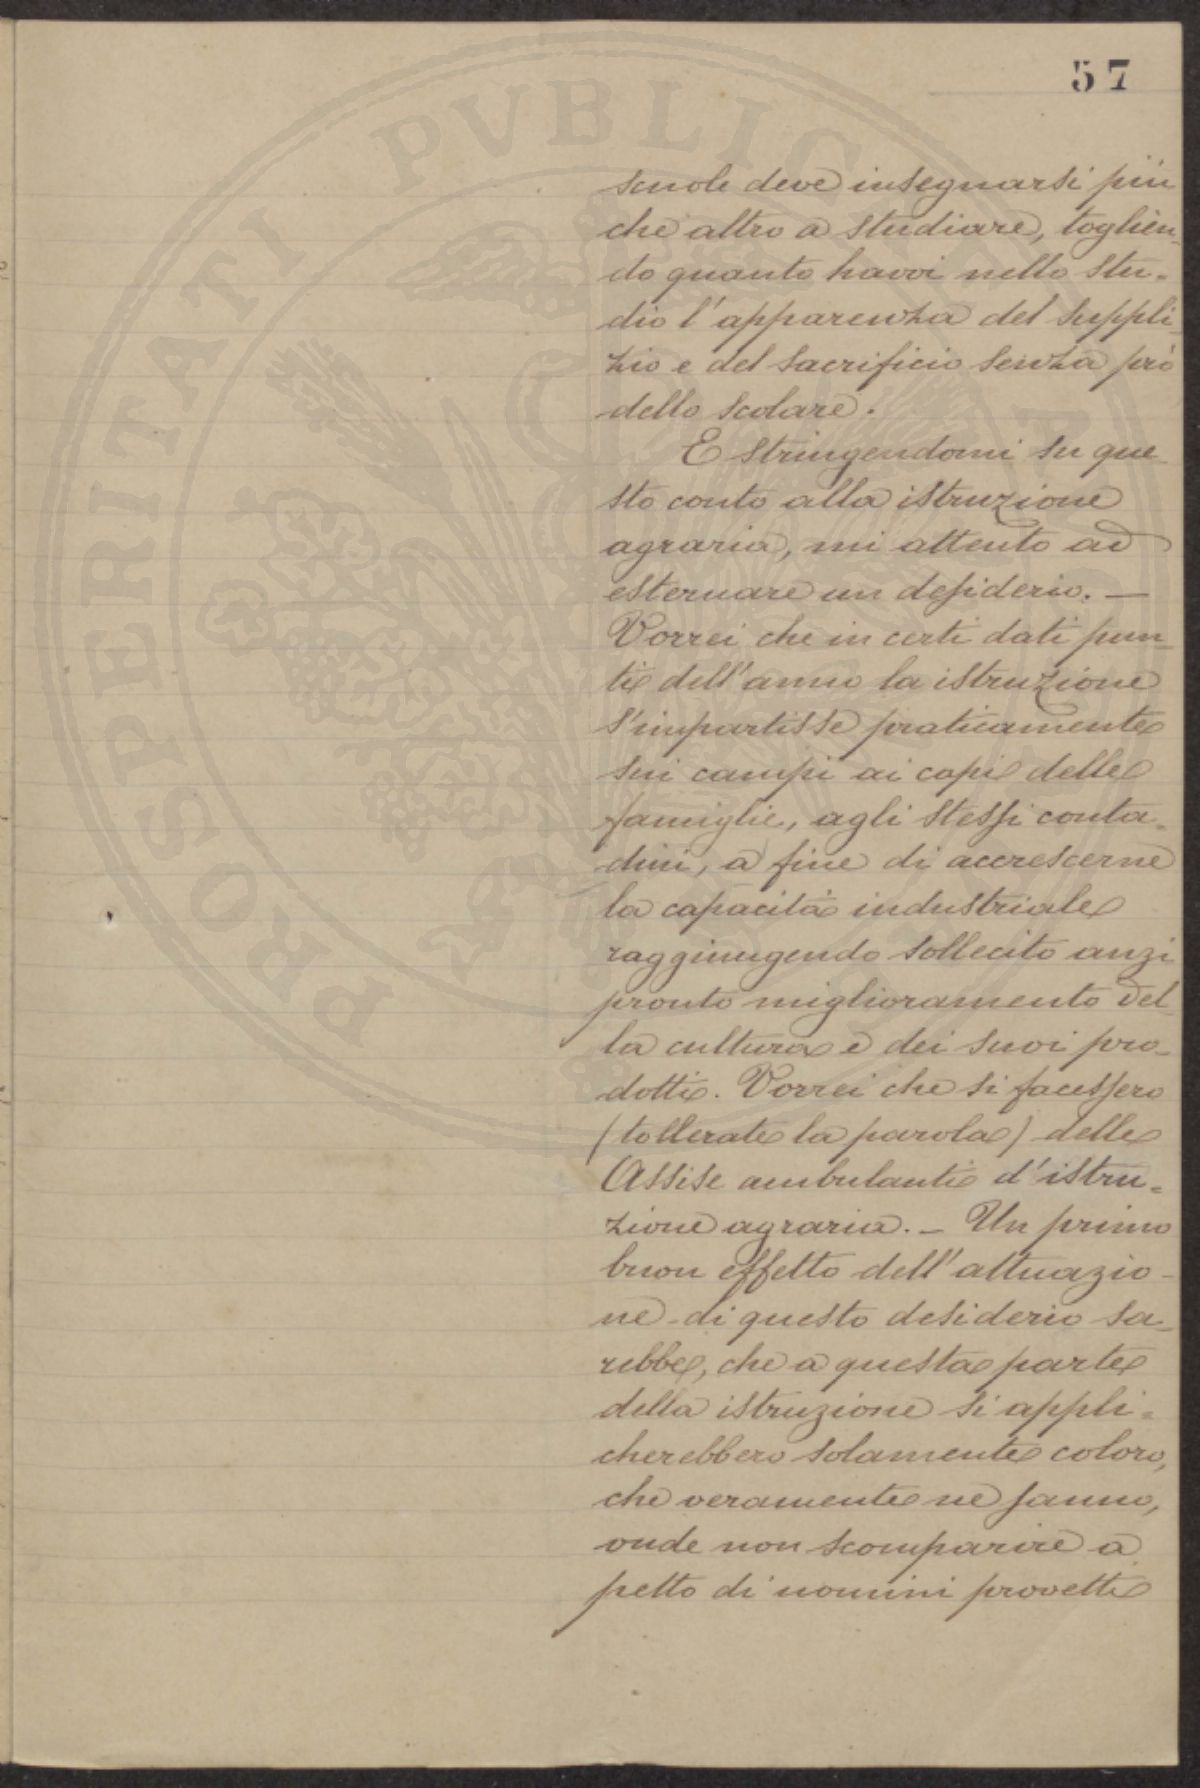 57
PROSPERITATI PVBLICAE
scuole deve insegnarsi più
che altro a studiare, toglien-
do quanto havvi nello stu=
dio l'apparenza del suppli-
zio e del sacrificio senza prò
dello scolare.
E stringendomi su que-
sto conto alla istruzione
agraria, mi attento ad
esternare un desiderio. —
Vorrei che in certi dati pun-
ti dell'anno la istruzione
s'impartisse praticamente
sui campi ai capi delle
famiglie, agli stessi conta=
dini, a fine di accrescerne
la capacità industriale
raggiungendo sollecito anzi
pronto miglioramento del-
la cultura e dei suoi pro-
dotti. Vorrei che si facessero
(tollerate la parola) delle
Assise ambulanti d'istru=
zione agraria. — Un primo
buon effetto dell'attuazio-
ne di questo desiderio sa-
rebbe, che a questa parte
della istruzione si appli=
cherebbero solamente coloro,
che veramente ne sanno,
onde non scomparire a
petto di uomini provetti